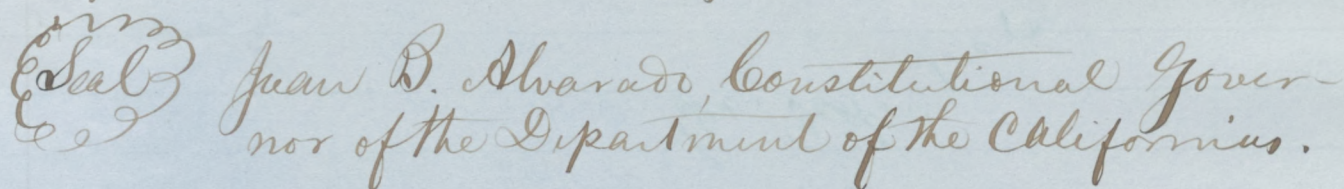 Seal
Juan B. Alvarado, Constitutional Gover-
nor of the Department of the Californias.